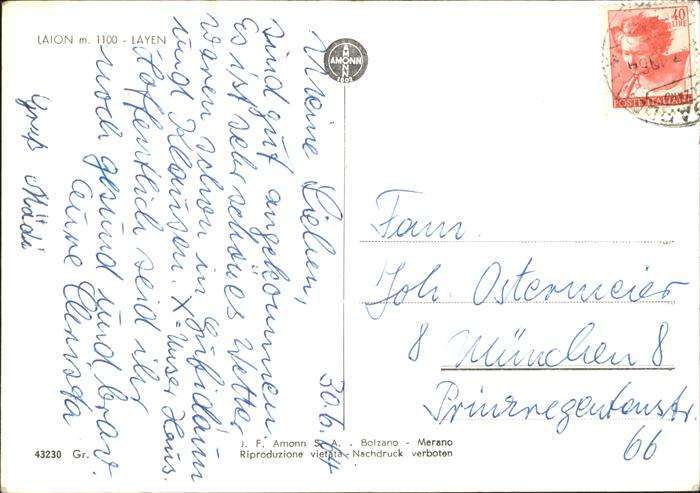 LAION m. 1100 - LAYEN
AMONN
AMONN
1802
40
LIRE
POSTE ITALIANE
30.6.64
Meine Lieben,
sind gut angekommen
Es ist sehr schönes Wetter
waren schon in Gufidaun
und Klausen. X = unser Haus.
Hoffentlich seid ihr
noch gesund und brav.
Eure
Gruß Mädi
Fam.
Joh. Ostermeier
8 München 8
Prinzregentenstr.
66
43230 Gr.
J. F. Amonn S. A. - Bolzano - Merano
Riproduzione vietata - Nachdruck verboten